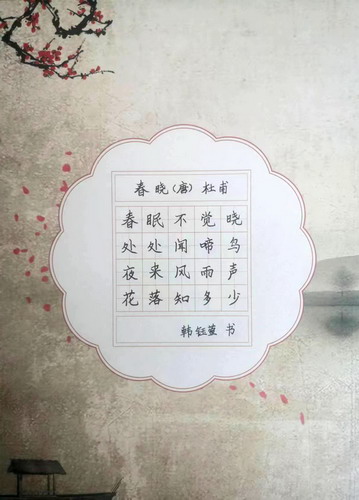 春晓(唐)杜甫
春眠不觉晓
处处闻啼鸟
夜来风雨声
花落知多少
韩钰萱 书